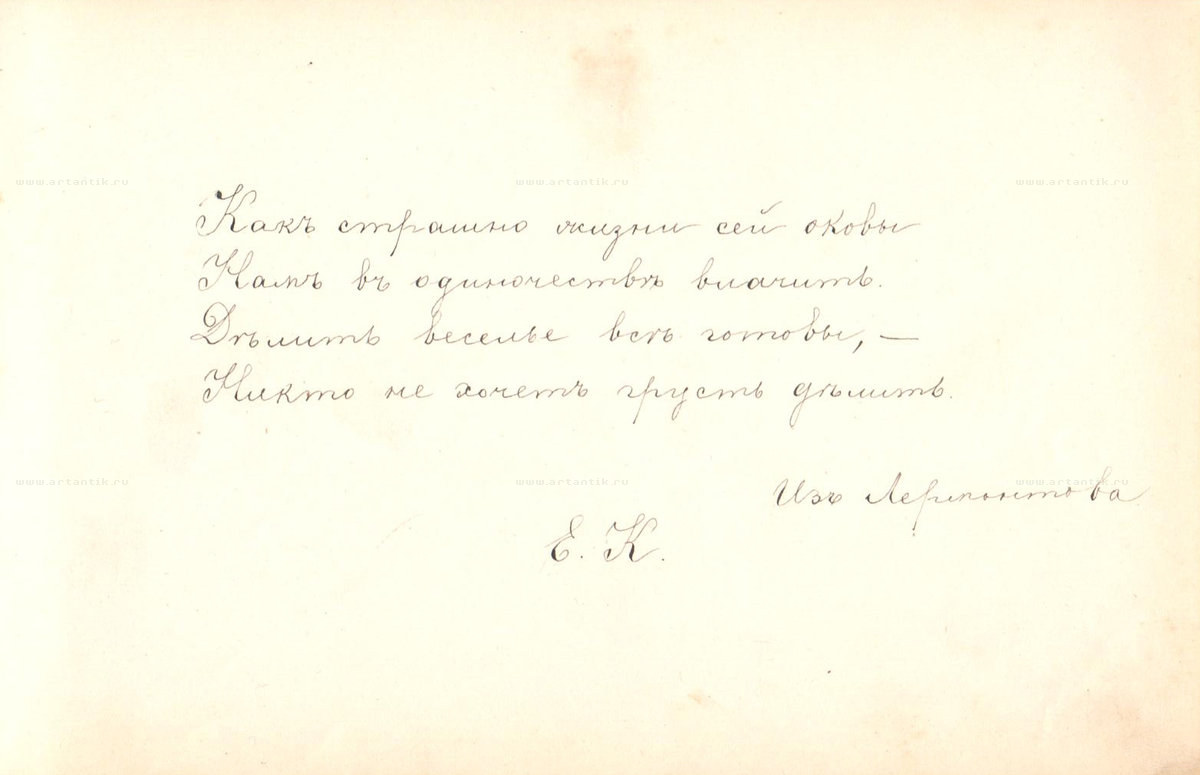 Какъ страшно жизни сей оковы
Намъ въ одиночествѣ влачить.
Дѣлить веселье всѣ готовы, —
Никто не хочетъ грусть дѣлить.
Изъ Лермонтова
Е. К.
www.artantik.ru www.artantik.ru www.artantik.ru
www.artantik.ru www.artantik.ru www.artantik.ru